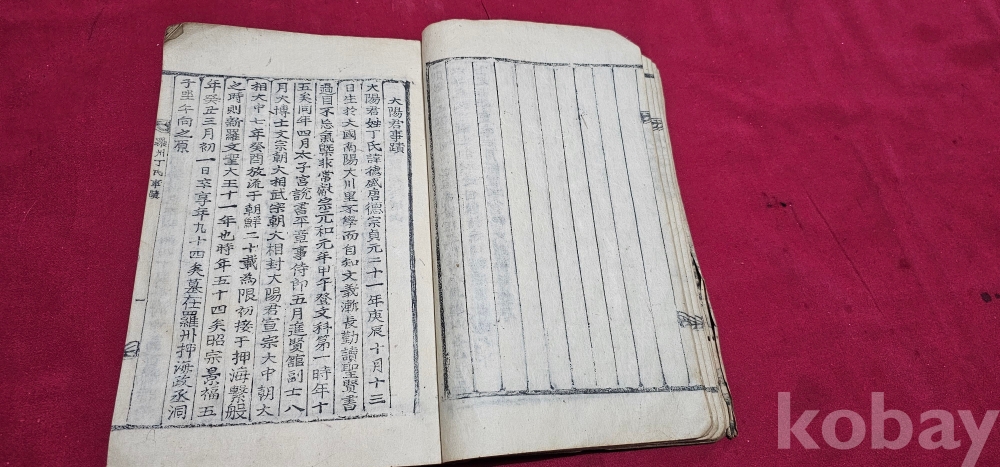 大陽君事蹟
大陽君姓丁氏諱德盛唐德宗貞元二十一年庚辰十月十三
日生於大國南陽大川里不學而自知文義漸長勤讀聖賢書
過目不忘氣槩非常憲宗元和元年甲午登文科第一時年十
五矣同年四月太子宮說書平章事侍郎五月進賢館副士八
月大博士文宗朝大相武宗朝大相封大陽君宣宗大中朝大
相大中七年癸酉放流于朝鮮二十載爲限初接于押海繫般
之時則新羅文聖大王十一年也時年五十四矣昭宗景福五
年癸丑三月初一日卒享年九十四矣墓在羅州押海政丞洞
子坐午向之原
羅州丁氏事蹟
一
kobay